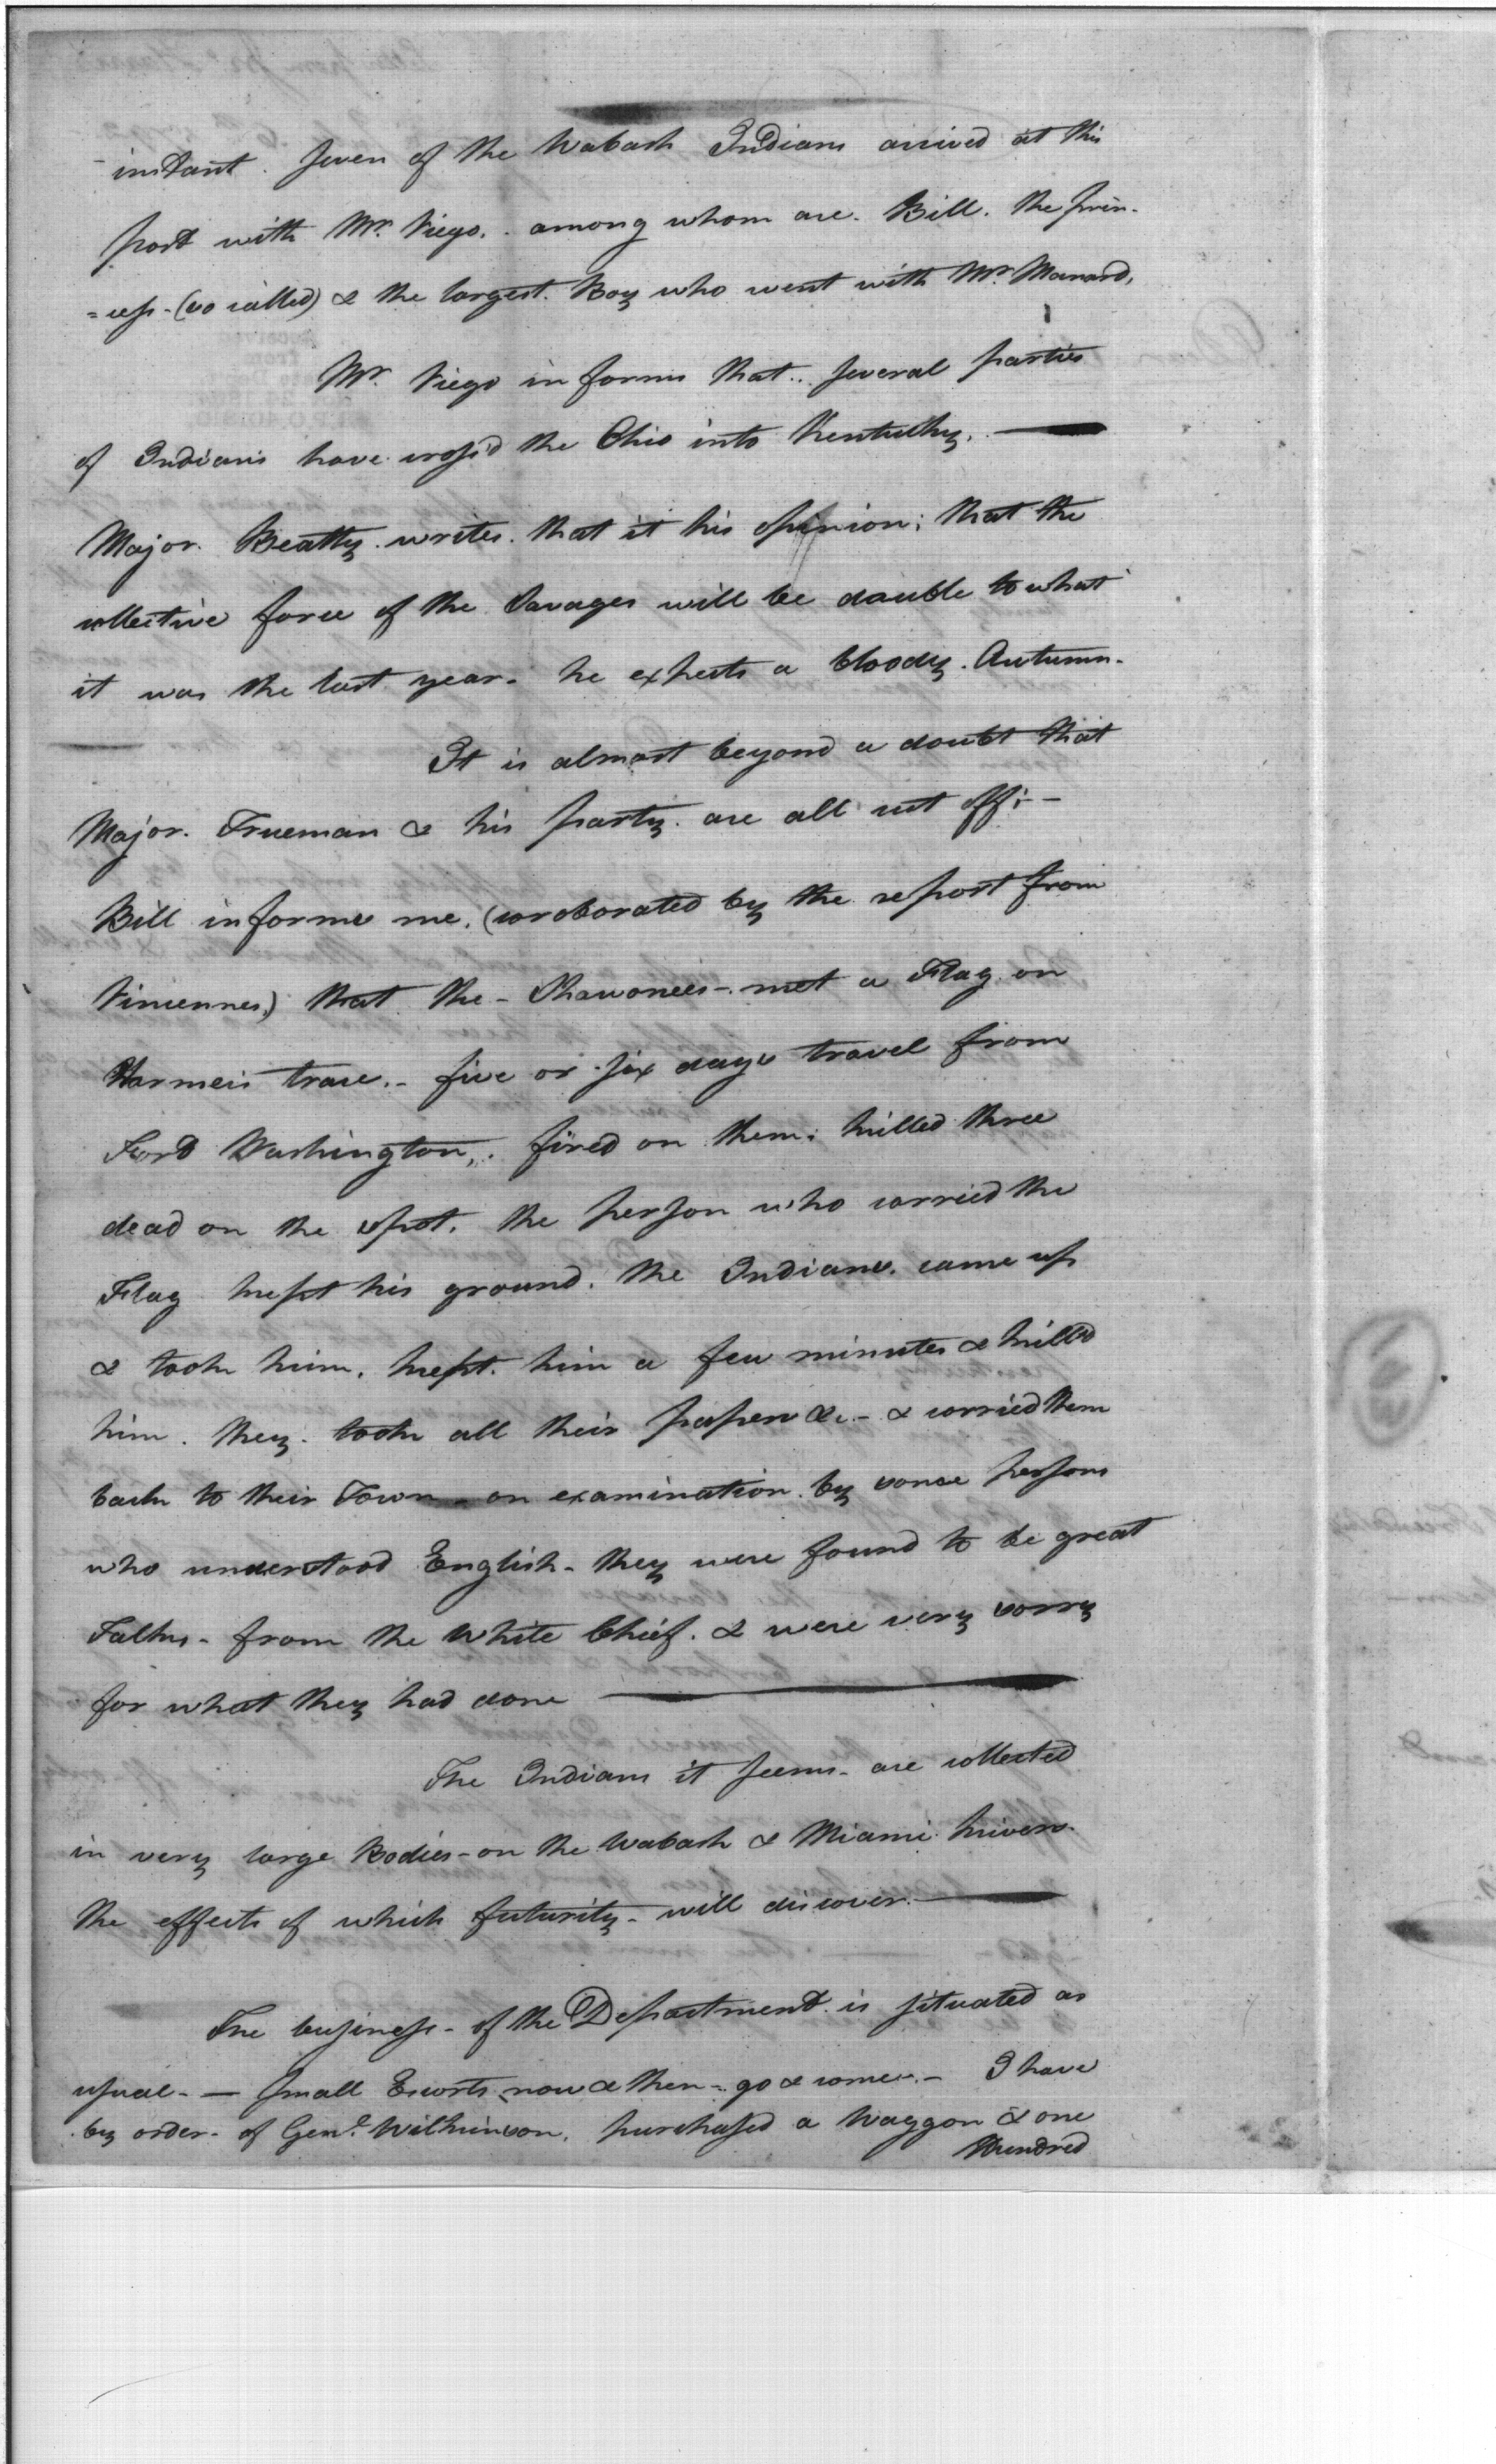 instant. Seven of the Wabash Indians arrived at this
post with Mr. Viego. among whom are. Bill. the prin-
=cess - (so called) & the largest. Boy who went with Mr. Manard,
Mr. Viego informs that.. several parties
of Indians have cross'd the Ohio into Kentucky. —
Major. Beatty. writes. that it his opinion; that the
collective force of the Savages will be double to what
it was the last year - he expects a bloody. Autumn -
It is almost beyond a doubt that
Major. Trueman & his party. are all cut off; -
Bill informs me. (coroborated by the report from
Vincennes.) that the - Shawonees - met a Flag on
Harmers trace. - five or six days travel from
Ford Washington,. fired on them; killed three
dead on the spot. the person who carried the
Flag kept his ground. the Indians. came up
& took him. kept. him a few minutes & killed
him. they. took all their papers &c. - & carried them
back to their Town - on examination. by some persons
who understood English - they were found to be great
Talks - from the White Chief. & were very sorry
for what they had done —
The Indians it seems - are collected
in very large Bodies - on the Wabash & Miami. Rivers -
the effects of which futurity - will discover. —
The business - of the Department. is situated as
usual - — small Escorts now & then - go & come. - I have
by order - of Genl. Wilkinson. purchased a Waggon & one
Hundred